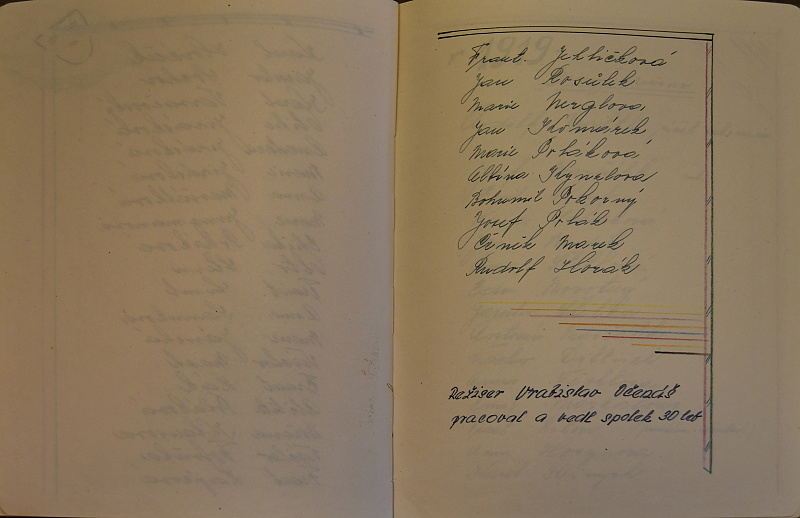 Frant. Jehličková
Jan Kosůlek
Marie Nerglova
Jan Komárek
Marie Prláková
Albína Kynclova
Bohumil Pokorný
Josef Prlák
Čeněk Marek
Rudolf Horák
Režiser Vratislav Očenáš
pracoval a vedl spolek 30 let